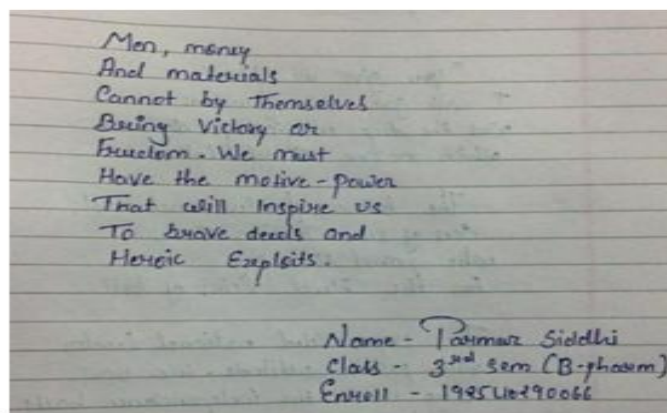 Men, money
And materials
Cannot by Themselves
Bring Victory or
Freedom. We must
Have the motive-power
That will Inspire us
To brave deeds and
Heroic Exploits.
Name - Parmar Siddhi
Class - 3rd sem (B-pharm)
Enroll -